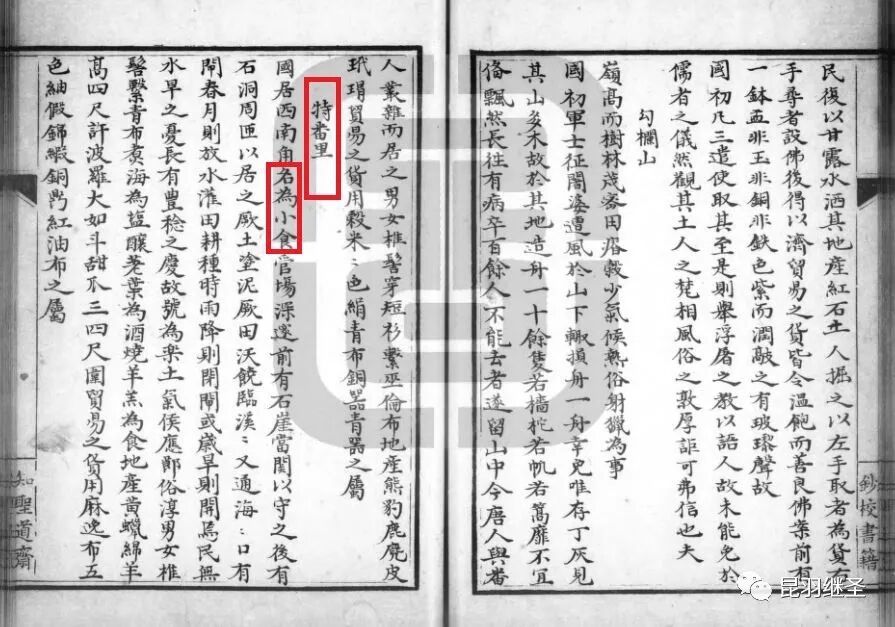 民復以甘露水洒其地產紅石土人掘之以左手取者為貨右
手尋者設佛後得以濟貿易之貨皆令溫飽而善良佛案前有
一鉢盂非玉非銅非鉄色紫而潤敲之有玻瓈聲故
國初凡三遣使取其至是則舉浮屠之教以語人故未能免於
儒者之儀然觀其土人之梵相風俗之敦厚詎可弗信也夫
勾欄山
嶺高而樹林茂密田瘠穀少氣候熱俗射獵為事
國初軍士征闍婆遭風於山下輙損舟一舟幸免唯存丁灰見
其山多禾故於其地造舟一十餘隻若檣柁若帆若篙靡不宜
偹飄然長往有病卒百餘人不能去者遂留山中今唐人與番
鈔校書籍
人叢雜而居之男女椎髻穿短衫繫巫倫布地產熊豹鹿麂皮
玳瑁貿易之貨用穀米〻色絹青布銅器青器之屬
特番里
國居西南角名為小食官場深邃前有石崖當関以守之後有
石洞周匝以居之厥土塗泥厥田沃饒臨溪〻又通海〻口有
閘春月則放水灌田耕種時雨降則閉閘或歲旱則開焉民無
水旱之憂長有豐稔之慶故號為樂土氣侯應節俗淳男女椎
髻繫青布煑海為塩釀荖葉為酒燒羊羔為食地產黃蠟綿羊
高四尺許波羅大如斗甜瓜三四尺圍貿易之貨用麻逸布五
色紬假錦緞銅鼎紅油布之屬
知聖道齋
昆羽继圣